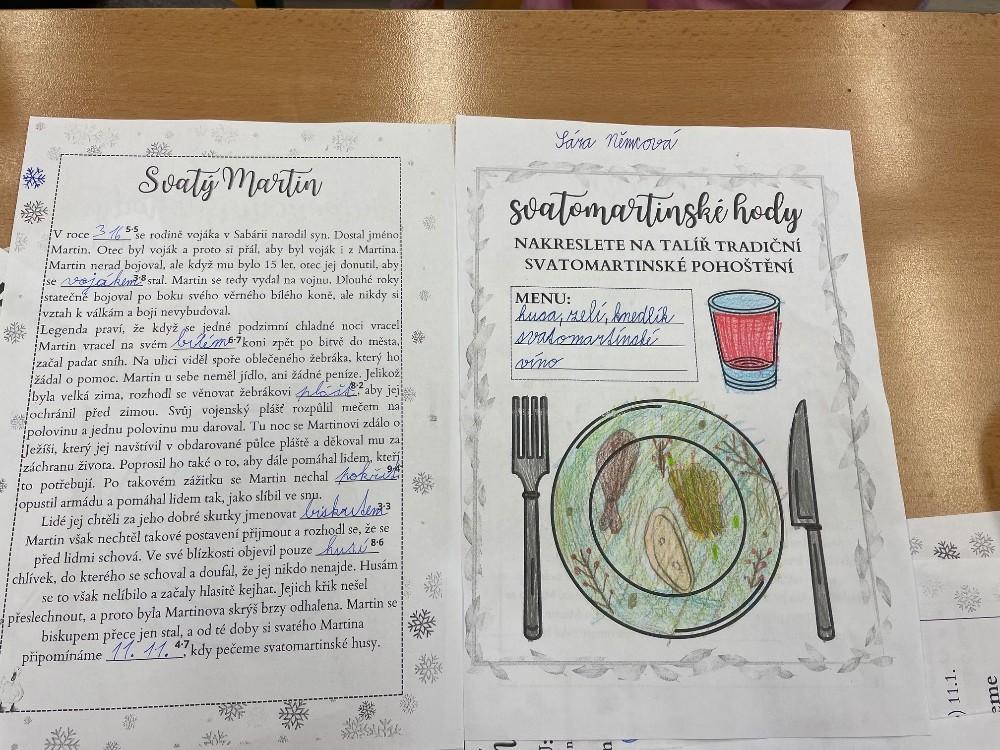 Svatý Martin
V roce 316 5·5 se rodině vojáka v Sabárii narodil syn. Dostal jméno
Martin. Otec byl voják a proto si přál, aby byl voják i z Martina.
Martin nerad bojoval, ale když mu bylo 15 let, otec jej donutil, aby
se vojákem 3·8 stal. Martin se tedy vydal na vojnu. Dlouhé roky
statečně bojoval po boku svého věrného bílého koně, ale nikdy si
vztah k válkám a boji nevybudoval.
Legenda praví, že když se jedné podzimní chladné noci vracel
Martin vracel na svém bílém 6·7 koni zpět po bitvě do města,
začal padat sníh. Na ulici viděl spoře oblečeného žebráka, který ho
žádal o pomoc. Martin u sebe neměl jídlo, ani žádné peníze. Jelikož
byla velká zima, rozhodl se věnovat žebrákovi plášť 8·2, aby jej
ochránil před zimou. Svůj vojenský plášť rozpůlil mečem na
polovinu a jednu polovinu mu daroval. Tu noc se Martinovi zdálo o
Ježíši, který jej navštívil v obdarované půlce pláště a děkoval mu za
záchranu života. Poprosil ho také o to, aby dále pomáhal lidem, kteří
to potřebují. Po takovém zážitku se Martin nechal pokřtít 9·4
opustil armádu a pomáhal lidem tak, jako slíbil ve snu.
Lidé jej chtěli za jeho dobré skutky jmenovat 3·3
Martin však nechtěl takové postavení přijmout a rozhodl se, že se
před lidmi schová. Ve své blízkosti objevil pouze husí 8·6
chlívek, do kterého se schoval a doufal, že jej nikdo nenajde. Husám
se to však nelíbilo a začaly hlasitě kejhat. Jejich křik nešel
přeslechnout, a proto byla Martinova skrýš brzy odhalena. Martin se
biskupem přece jen stal, a od té doby si svatého Martina
připomínáme 11. 11. 4·7, kdy pečeme svatomartinské husy.
Sára Němcová
svatomartinské hody
NAKRESLETE NA TALÍŘ TRADIČNÍ
SVATOMARTINSKÉ POHOŠTĚNÍ
MENU:
husa, zelí, knedlík
svatomartinské
víno
) 11.1.